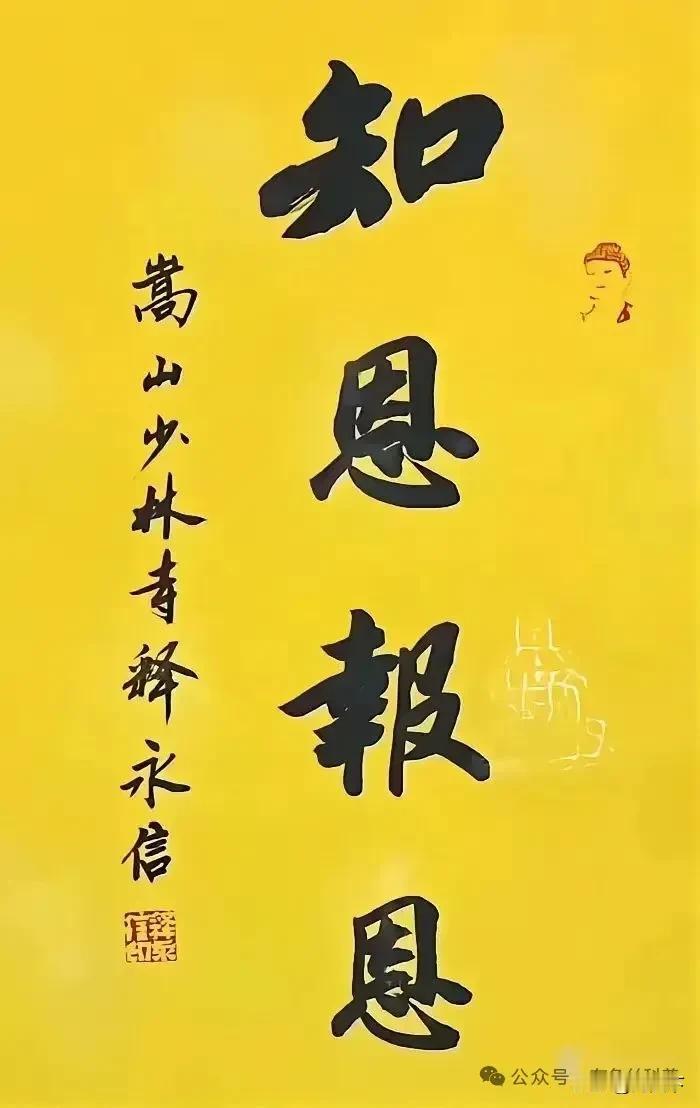 知恩報恩
嵩山少林寺释永信
公众号